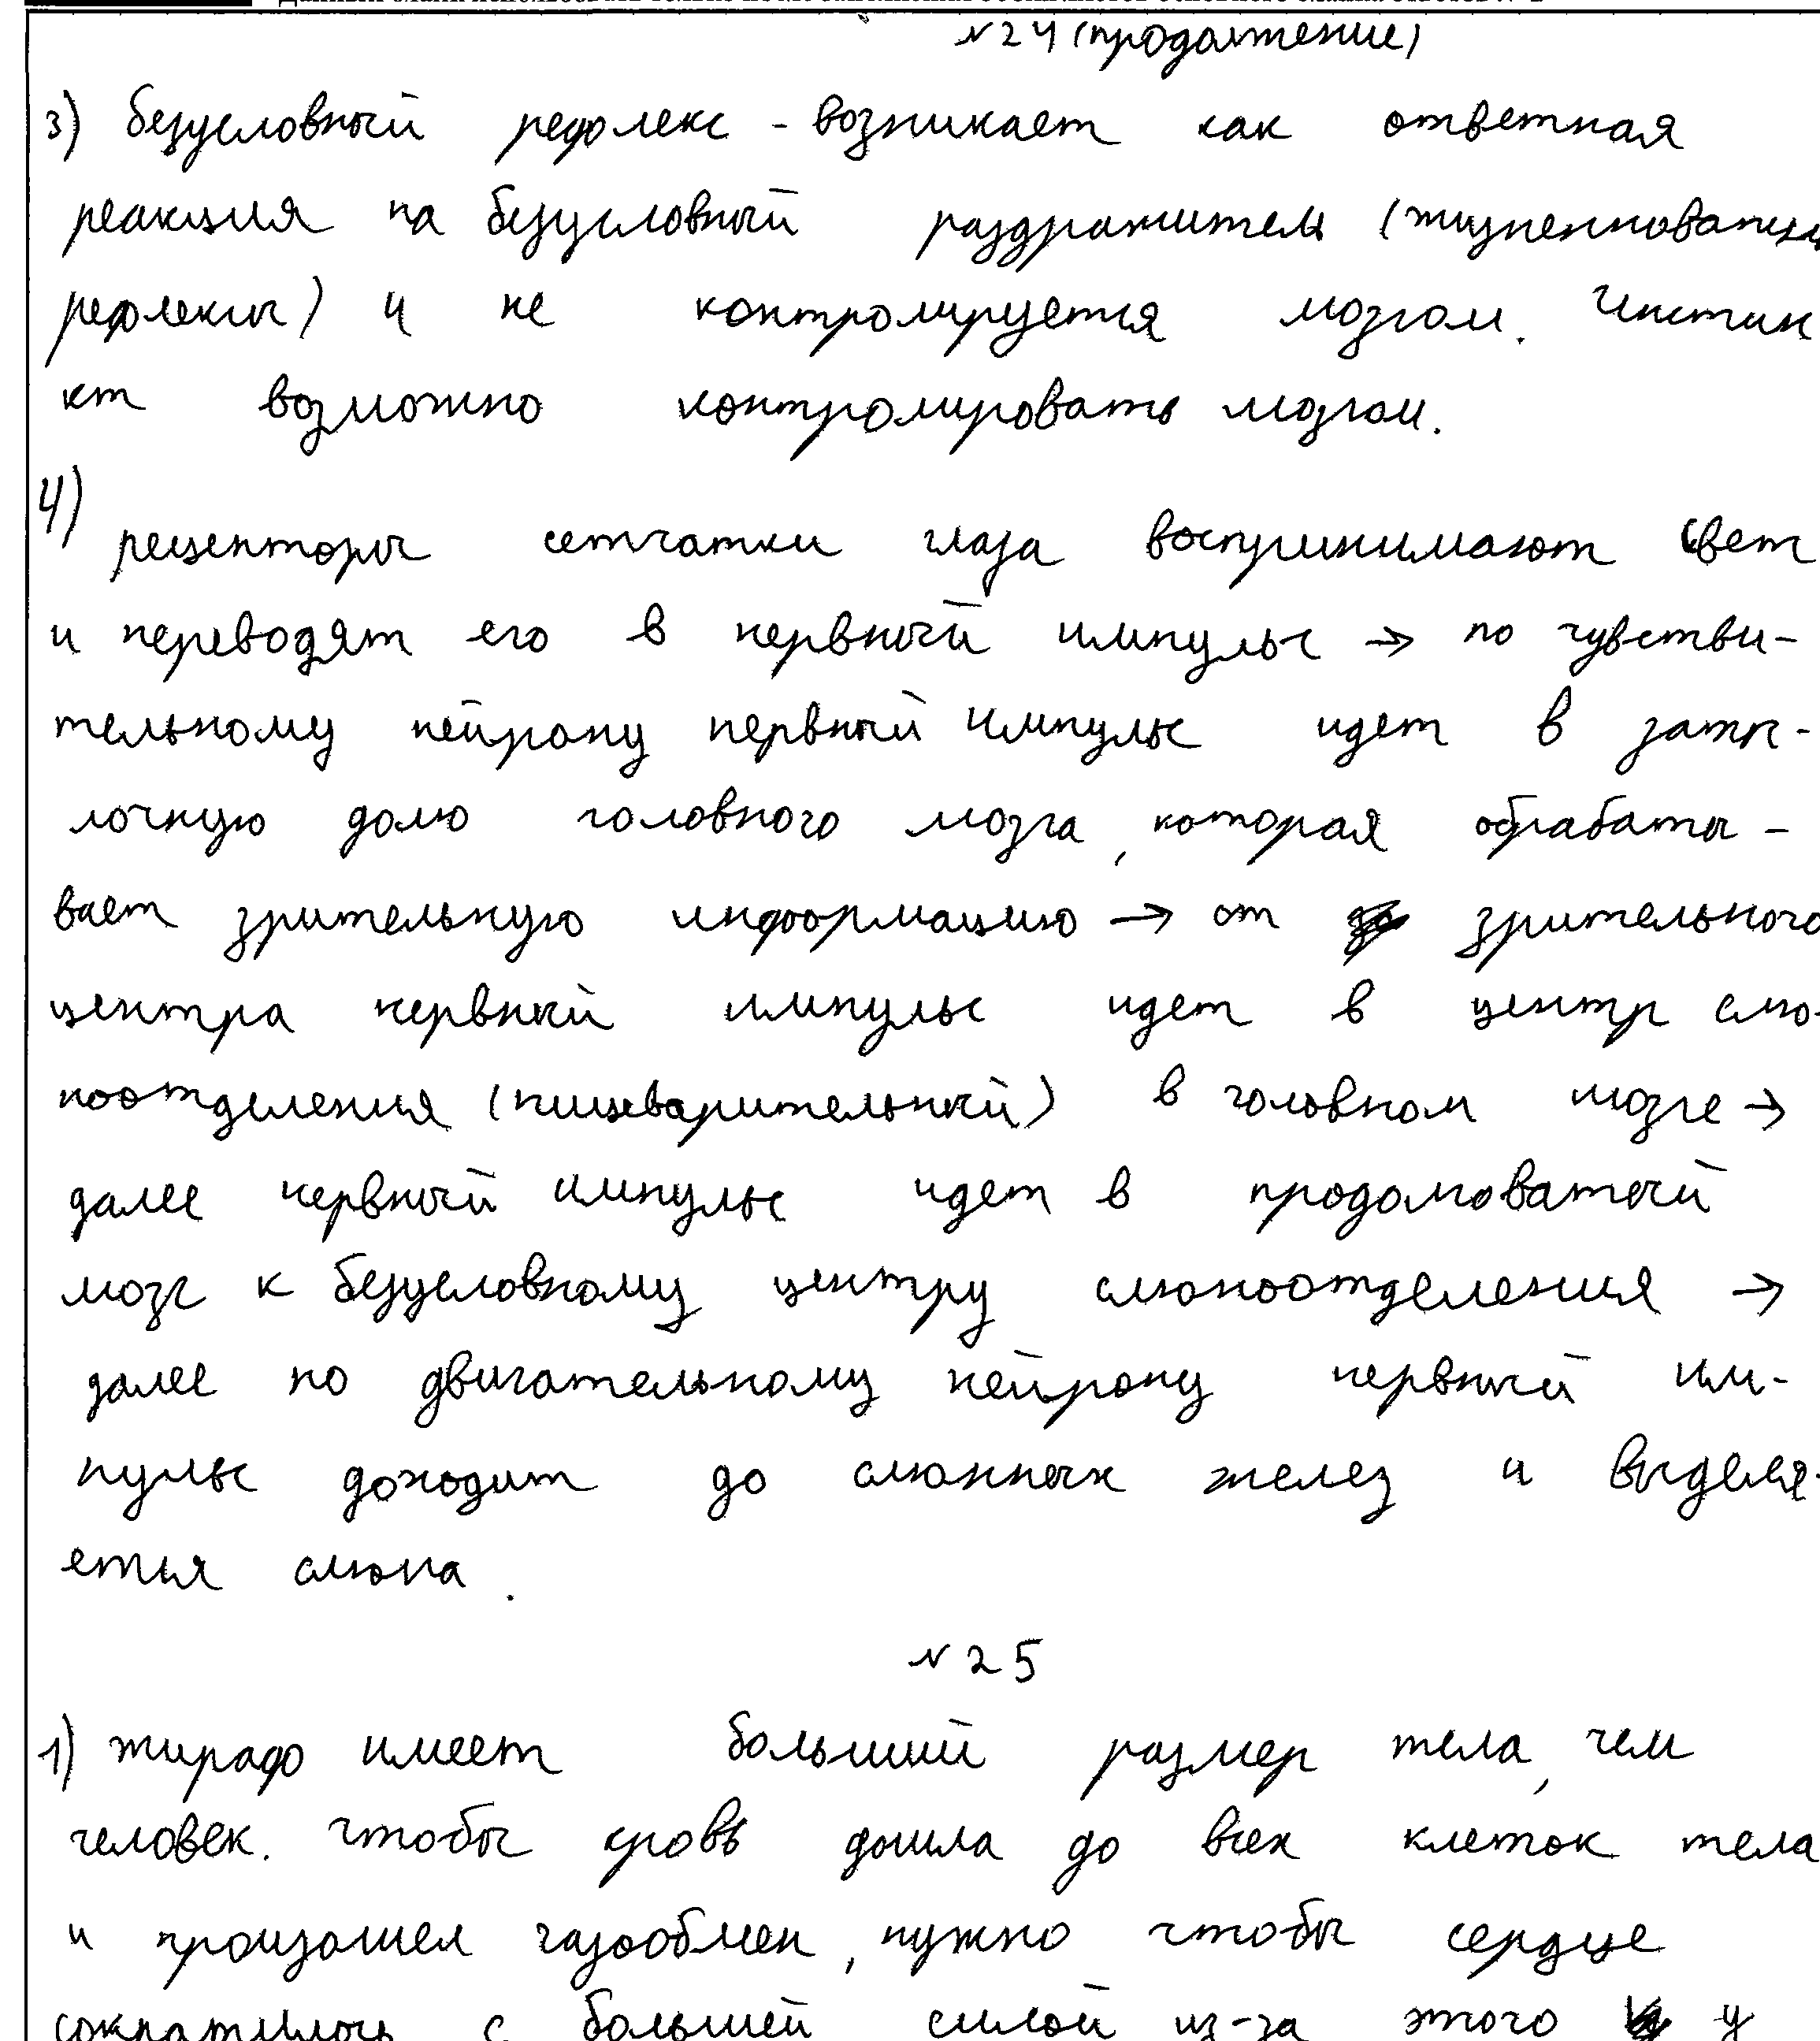 №24 (продолжение)
3) безусловный рефлекс - возникает как ответная
реакция на безусловный раздражитель (жизненноважные
рефлексы) и не контролируется мозгом. Инстин
кт возможно контролировать мозгом.
4)
рецепторы сетчатки глаза воспринимают свет
и переводят его в нервный импульс → по чувстви-
тельному нейрону нервный импульс идет в заты-
лочную долю головного мозга, которая обрабаты-
вает зрительную информацию → от зрительного
центра нервный импульс идет в центр слю-
ноотделения (пищеварительный) в головном мозге →
далее нервный импульс идет в продолговатый
мозг к безусловному центру слюноотделения →
далее по двигательному нейрону нервный им-
пульс доходит до слюнных желез и выделя-
ется слюна.
№25
1) жираф имеет больший размер тела, чем
человек. чтобы кровь дошла до всех клеток тела
и произошел газообмен, нужно чтобы сердце
сократилось с большей силой из-за этого у